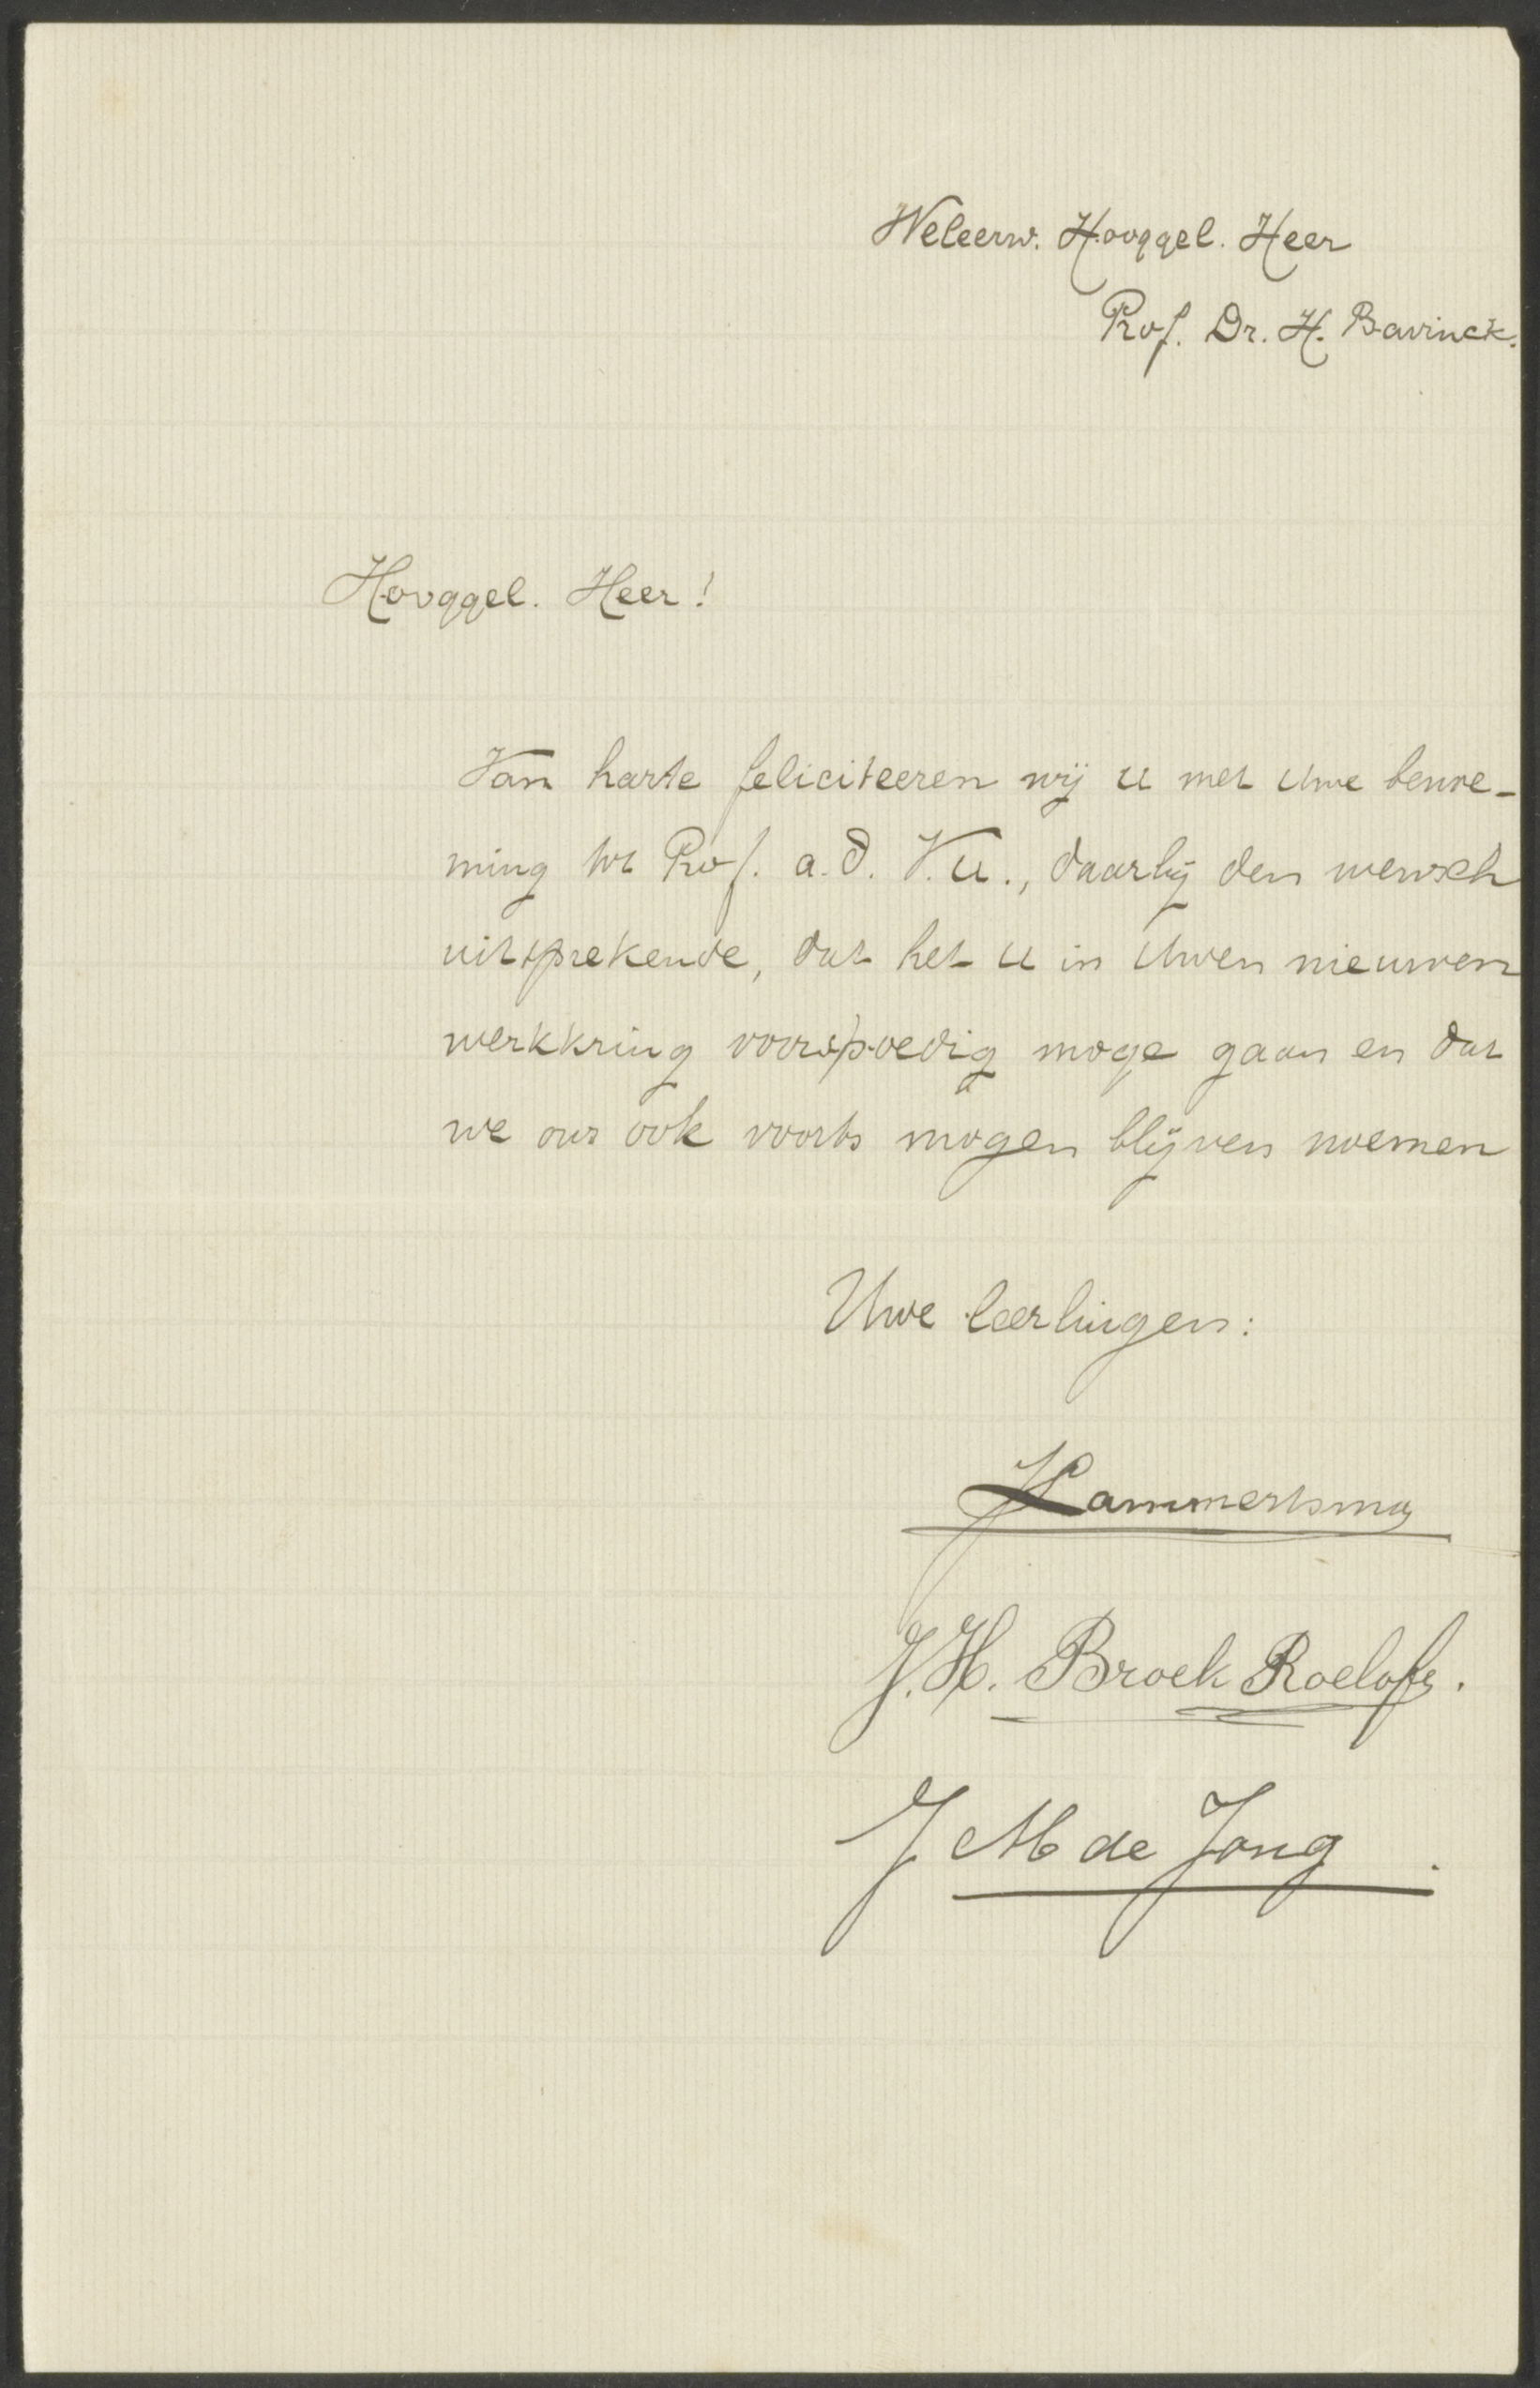 Weleerw. Hooggel. Heer
Prof. Dr. H. Bavinck.
Hooggel. Heer!
Van harte feliciteeren wij U met Uwe benoe-
ming tot Prof. a. d. V.U., daarbij den wensch
uitsprekende, dat het U in Uwen nieuwen
werkkring voorspoedig moge gaan en dat
we ons ook voorts mogen blijven noemen
Uwe leerlingen:
Lammertsma
J. H. Broek Roelofs.
J M de Jong.